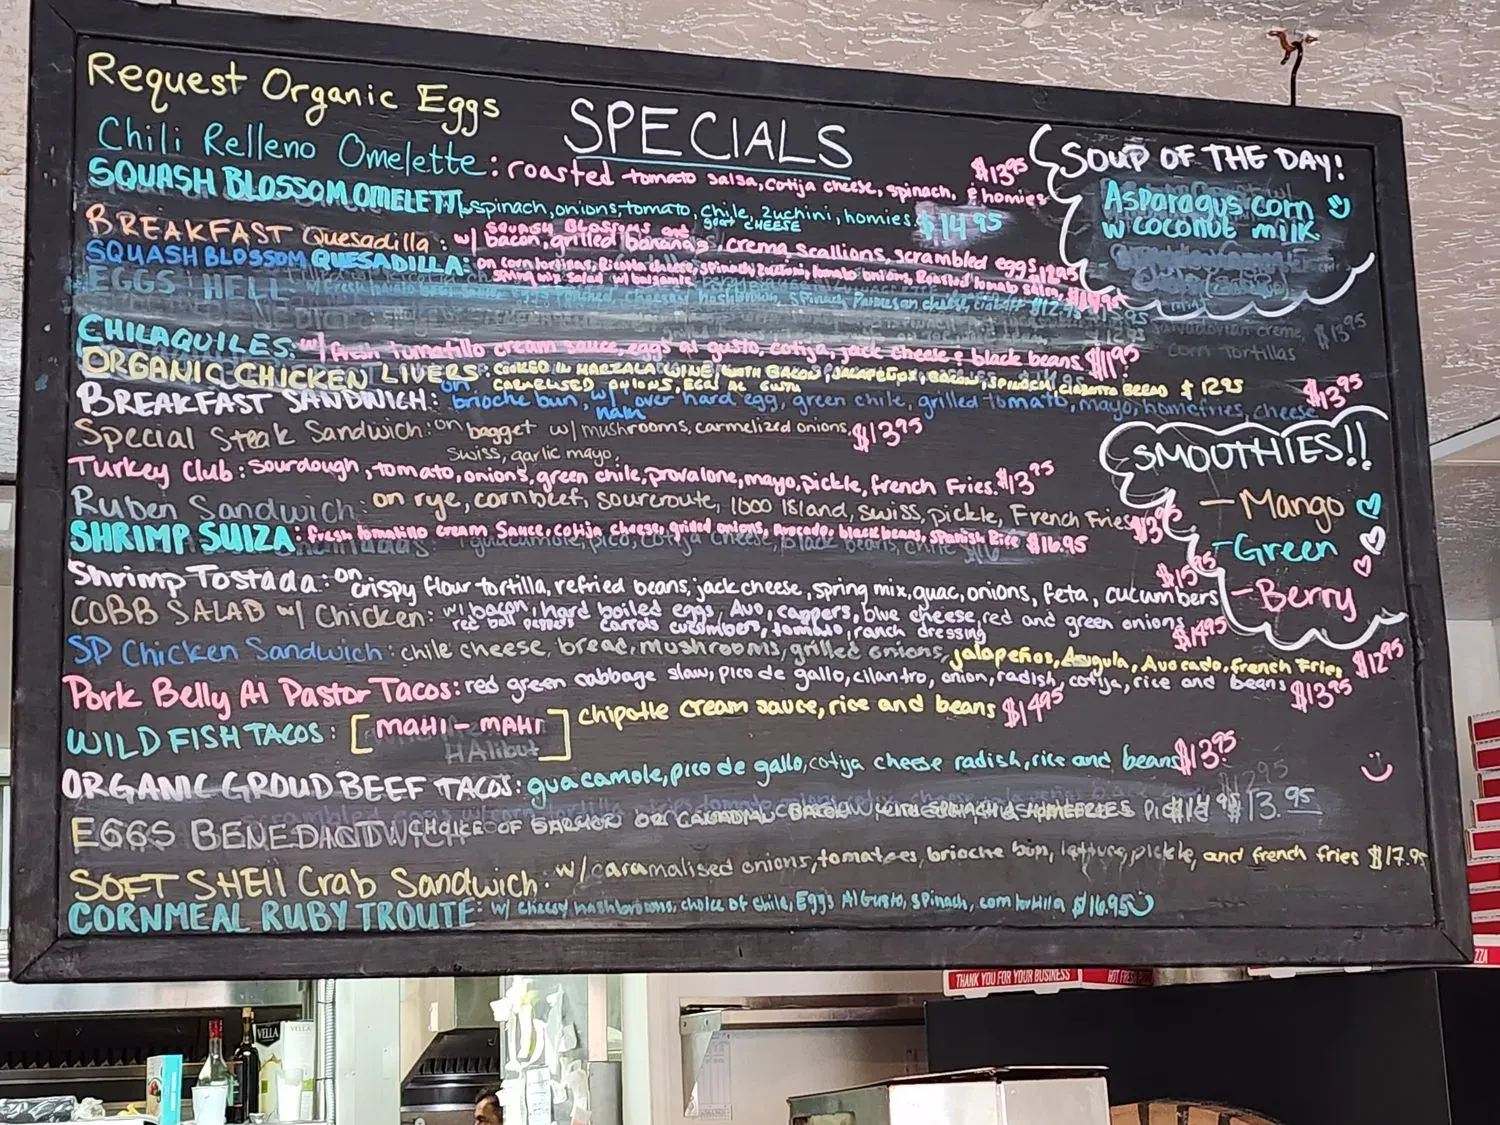 Request Organic Eggs
SPECIALS
Chili Relleno Omelette: roasted tomato salsa, cotija cheese, spinach, & homies $13.95
SQUASH BLOSSOM OMELETT, spinach, onions, tomato, chile, zuchini, homies $14.95
SQUASH BLOSSOMS and goat CHEESE
BREAKFAST Quesadilla: w/ bacon, grilled bananas, crema, scallions, scrambled eggs $12.95
SQUASH BLOSSOM QUESADILLA: on corn tortillas, Ricotta cheese, spinach, zucchini, tomato onions, Roasted tomato salsa, $14.95
spring mix salad w/ balsamic
EGGS HELL
CHILAQUILES: w/ fresh tomatillo cream sauce, eggs al gusto, cotija, jack cheese & black beans $11.95
ORGANIC CHICKEN LIVERS: COOKED IN MARZALA WINE WITH BACON, JALAPEÑOS, BACON, SPINACH, CIABATTA BREAD $12.95
CARMELISED ONIONS, EGGS AL GUSTO
BREAKFAST SANDWICH: on brioche bun, w/ over hard egg, green chile, grilled tomato, mayo, homefries, cheese $13.95
ham
Special Steak Sandwich: on bagget w/ mushrooms, carmelized onions, $13.95
swiss, garlic mayo,
Turkey Club: sourdough, tomato, onions, green chile, provalone, mayo, pickle, french Fries. $13.95
Ruben Sandwich: on rye, corn beef, sourcroute, 1000 Island, swiss, pickle, French Fries $13.95
SHRIMP SUIZA: fresh tomatillo cream Sauce, cotija cheese, grilled onions, Avocado, black beans, Spanish Rice $16.95
Shrimp Tostada: on crispy flour tortilla, refried beans, jack cheese, spring mix, guac, onions, feta, cucumbers $15.95
COBB SALAD w/ Chicken: w/ bacon, hard boiled eggs, Avo, cappers, blue cheese, red and green onions, $14.95
red bell peppers carrots cucumbers, tomato, ranch dressing
SP Chicken Sandwich: chile cheese, bread, mushrooms, grilled onions, jalapeños, Arugula, Avocado, french Fries $12.95
Pork Belly Al Pastor Tacos: red green cabbage slaw, pico de gallo, cilantro, onion, radish, cotija, rice and beans $13.95
WILD FISH TACOS: [MAHI-MAHI] chipotle cream sauce, rice and beans $14.95
HAlibut
ORGANIC GROUD BEEF TACOS: guacamole, pico de gallo, cotija cheese radish, rice and beans $13.95
EGGS BENEDICT CHOICE OF OR CANADIAN BACON WITH SPINACH & HOMEFRIES $13.95
SOFT SHEll Crab Sandwich: w/ caramalised onions, tomatoes, brioche bun, lettuce, pickle, and french fries $17.95
CORNMEAL RUBY TROUTE: w/ cheesy hashbrowns, choice of chile, Eggs Al Gusto, spinach, corn tortilla $16.95
SOUP OF THE DAY!
Asparagus corn
w coconut milk
corn tortillas
$13.95
SMOOTHIES!!
- Mango
- Green
- Berry
THANK YOU FOR YOUR BUSINESS
VELLA
VELLA